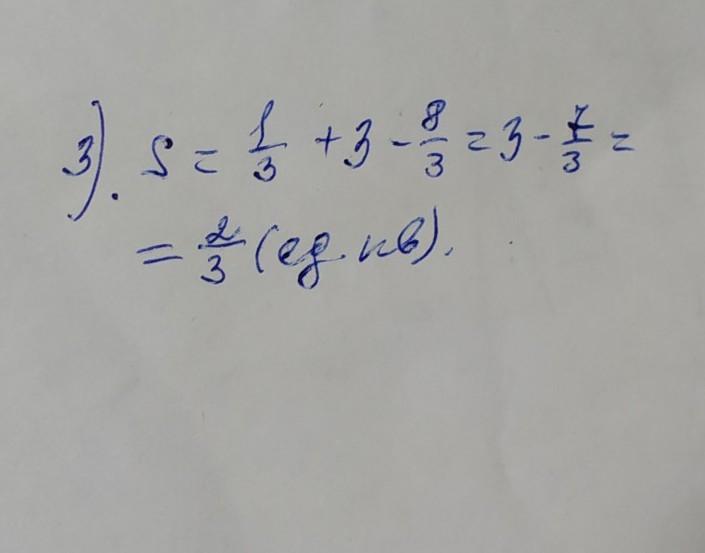 3). S = 1/3 + 3 - 8/3 = 3 - 7/3 =
= 2/3 (ед. кв).